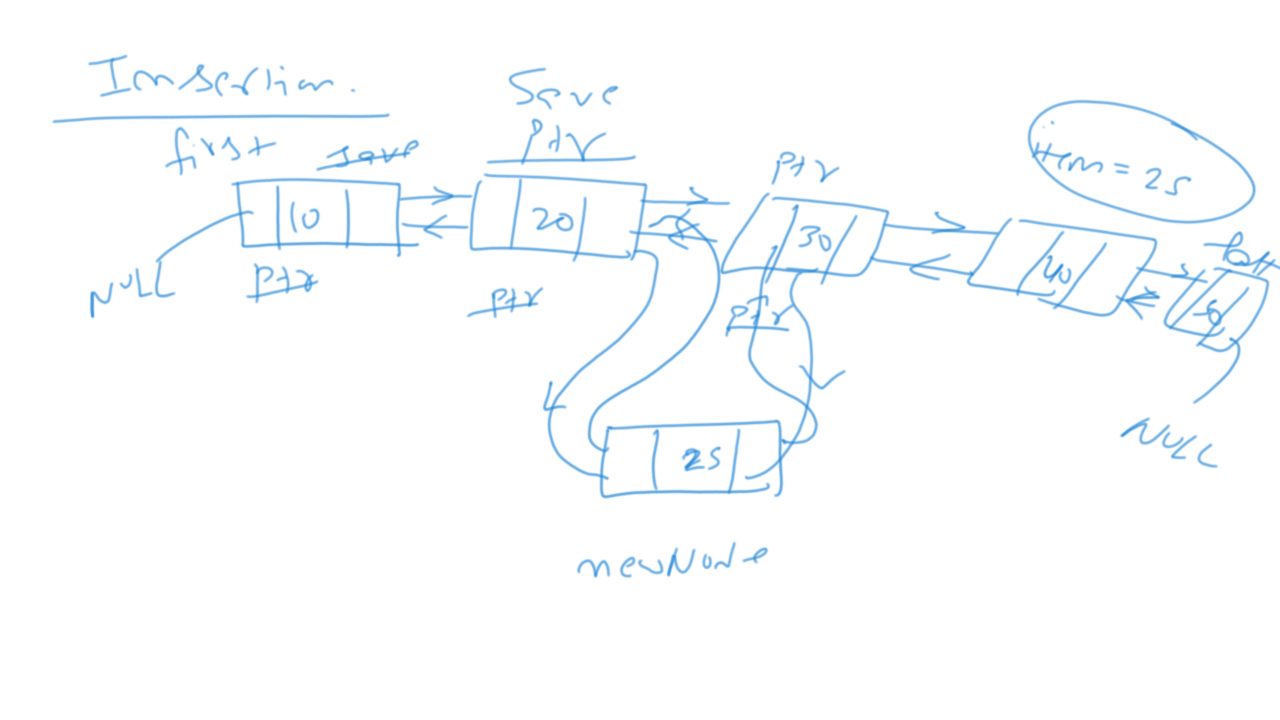 Insertion.
first save
Save
ptr
ptr
item = 25
10
20
30
40
50
last
NULL
ptr
ptr
ptr
NULL
25
newNode